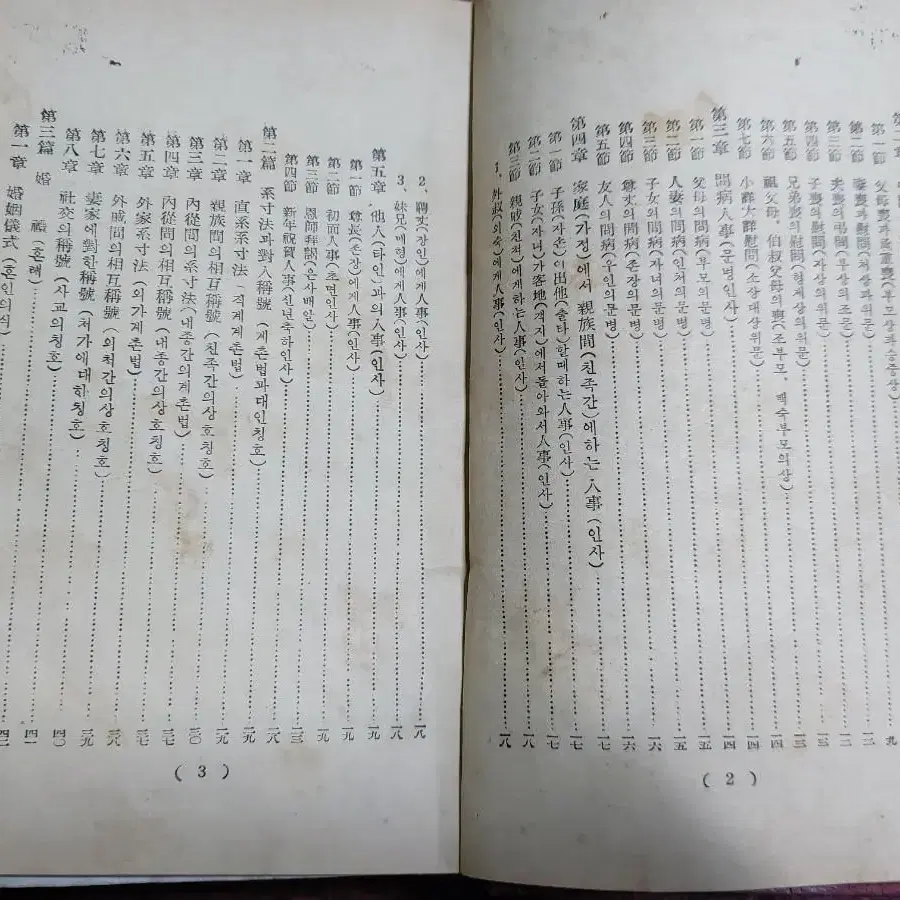 第一節 父母喪과承重喪(부모상과승중상)
第二節 妻喪과 (처상과위문)
第三節 夫喪의弔問(부상의조문)
第四節 子喪의慰問(자상의위문)
第五節 兄弟喪의慰問(형제상의위문)
第六節 祖父母、伯叔父母의喪(조부모、백숙부모의상)
第七節 小祥大祥慰問(소상대상위문)
第三章 問病人事(문병인사)
第一節 父母의問病(부모의문병)
第二節 人妻의問病(인처의문병)
第三節 子女의問病(자녀의문병)
第四節 尊丈의問病(존장의문병)
第五節 友人의問病(우인의문병)
第四章 家庭(가정)에서 親族間(친족간)에하는 人事(인사)
第一節 子孫(자손)이出他(출타)할때하는人事(인사)
第二節 子女(자녀)가客地(객지)에서돌아와서人事(인사)
第三節 親戚(친척)에게하는人事(인사)
1、外叔(외숙)에게人事(인사)
(2)
2、聘丈(장인)에게人事(인사)
3、妹兄(매형)에게人事(인사)
第五章 他人(타인)과의人事(인사)
第一節 尊長(존장)에게人事(인사)
第二節 初面人事(초면인사)
第三節 恩師拜謁(은사배알)
第四節 新年祝賀人事(신년축하인사)
第二篇 系寸法과對人稱號(계촌법과대인칭호)
第一章 直系系寸法(직계계촌법)
第二章 親族間의相互稱號(친족간의상호칭호)
第三章 內從間의系寸法(내종간의계촌법)
第四章 內從間의相互稱號(내종간의상호칭호)
第五章 外家系寸法(외가계촌법)
第六章 外戚間의相互稱號(외척간의상호칭호)
第七章 妻家에對한稱號(처가에대한칭호)
第八章 社交의稱號(사교의칭호)
第三篇 婚 禮(혼례)
第一章 婚姻儀式(혼인의식)
(3)